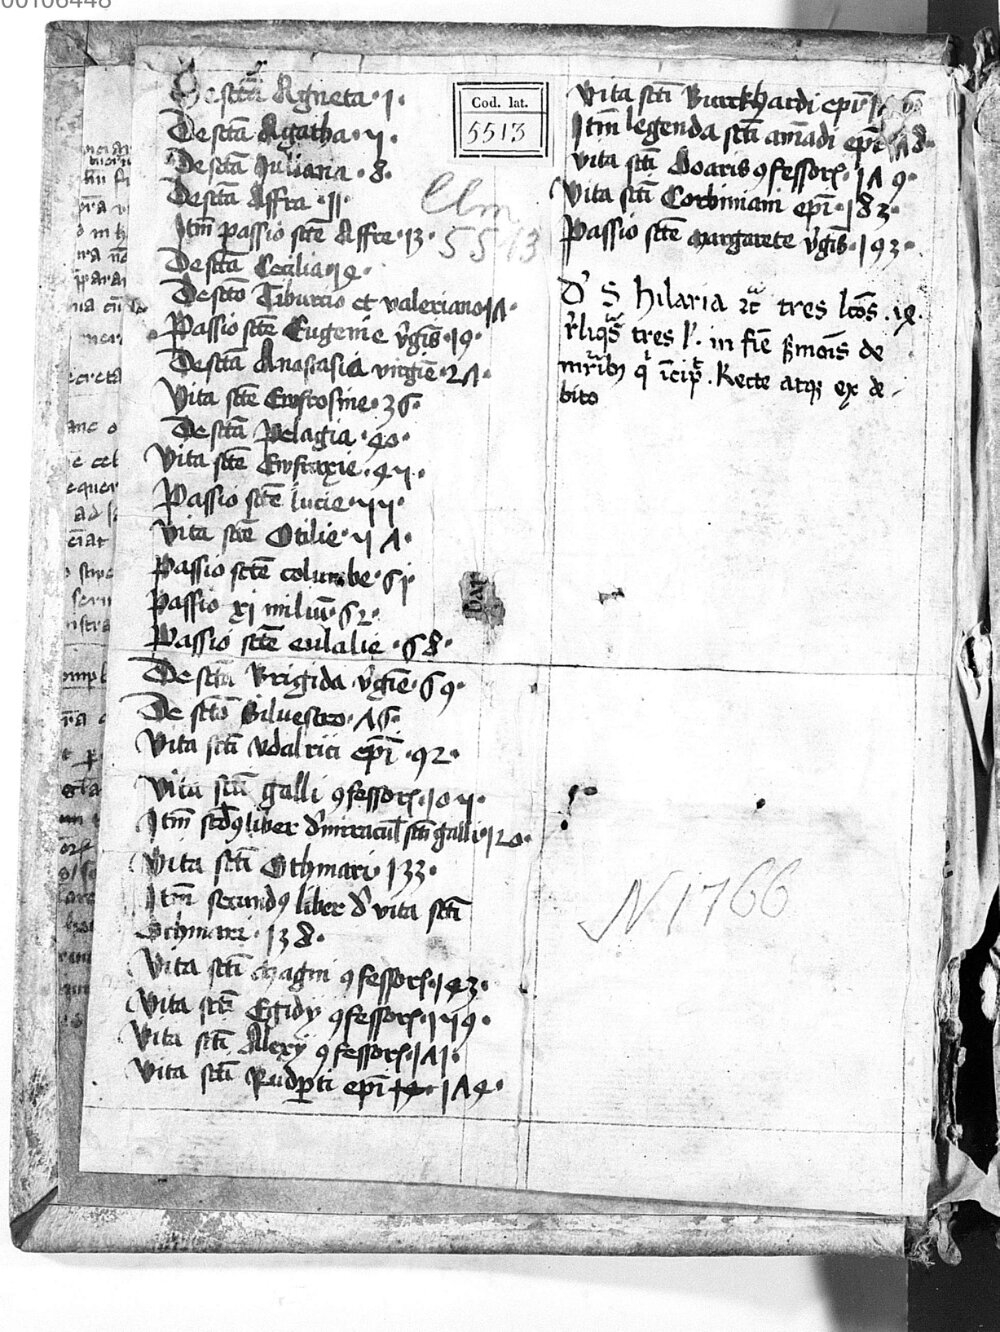 00106448
De sctā Agneta · 1 ·
De sctā Agatha · 5 ·
De sctā Juliana · 8 ·
De sctā Affra · 11 ·
Itm̄ passio scte Affre · 13 ·
De sctā Cecilia · 14 ·
De scto Tiburcio et valeriano 17 ·
Passio scte Eugenie v̄gīs · 19 ·
De sctā Anastasia virgīe · 27 ·
Vita scte Eufrosine · 36 ·
De sctā Pelagia · 40 ·
Vita scte Eufraxie · 45 ·
Passio scte lucie · 55 ·
Vita scte Otilie · 57 ·
Passio scte columbe · 61
Passio xi miliū · 62 ·
Passio scte eulalie · 68 ·
De sctā Brigida v̄gīe · 69 ·
De scto Siluestro · 76 ·
Vita scti Udalrici ep̄i · 92 ·
Vita scti galli ꝯfessorꝭ · 105 ·
Itm̄ scd̄ꝯ liber d' miracul' scti galli · 120 ·
Vita scti Othmari · 133 ·
Itm̄ secundꝯ liber d' vita scti
Othmari · 138 ·
Vita scti Magni ꝯfessorꝭ · 143 ·
Vita scti Egidij ꝯfessorꝭ · 159 ·
Vita scti Alexij ꝯfessorꝭ · 171 ·
Vita scti Rudꝑti ep̄i · 174 ·
Cod. lat.
5513
Clm
5513
Vita scti Burckhardi ep̄i
Itm̄ legenda scti amādi ep̄i
Vita scti Goaris ꝯfessorꝭ · 179 ·
Vita scti Corbiniani ep̄i · 183 ·
Passio scte margarete v̄gīs · 193 ·
D' S. hilaria tres lc̄os · 14 ·
r̄liqs̄ tres l'. in fīe ẜmoīs de
mr̄ibꝫ q' īcip̄. Recte atqꝫ ex de
bito
bar
N 1766